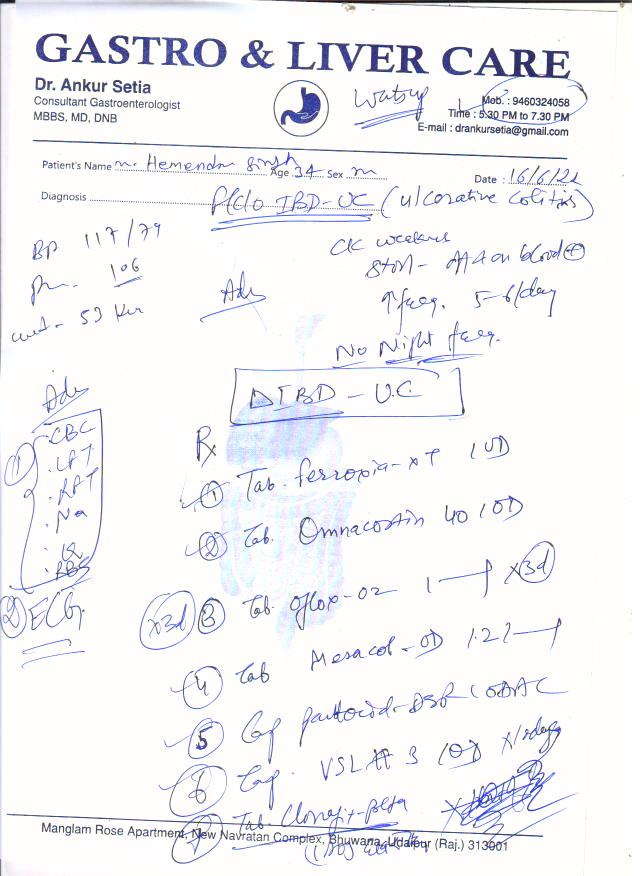 GASTRO & LIVER CARE
Dr. Ankur Setia
Consultant Gastroenterologist
MBBS, MD, DNB
Mob. : 9460324058
Time : 5.30 PM to 7.30 PM
E-mail : drankursetia@gmail.com
Patient's Name Hemendra Singh Age 34 Sex m Date : 16/6/21
Diagnosis P/C/O IBD-UC (Ulcerative Colitis)
BP 117/79
106
53
Adv
5-6/day
No Night freq.
Δ IBD - U.C
Adv
① CBC
LFT
RFT
Na
K
RBS
② ECG
Rx
① Tab. Ferroxia-XT 1 OD
② Tab. Omnacortin 40 1 OD
x3d ③ Tab. Oflox-OZ 1 — 1 x3d
④ Tab Mesacol-OD 1.2 1 — 1
⑤ Cap Pantocid-DSR 1 ODAC
⑥ Cap. VSL # 3 1 OD x 10days
⑦ Tab.
Manglam Rose Apartment, New Navratan Complex, Bhuwana, Udaipur (Raj.) 313001